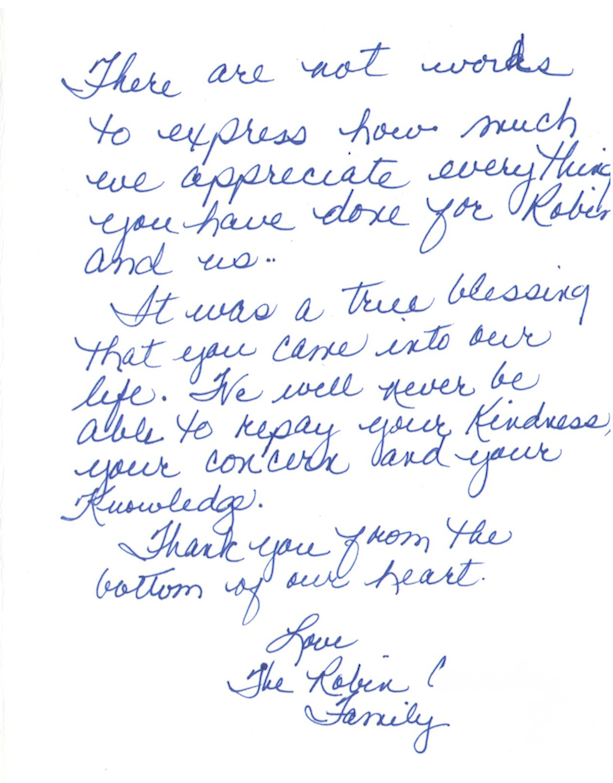 There are not words
to express how much
we appreciate everything
you have done for Robin
and us..
It was a true blessing
that you came into our
life. We will never be
able to repay your kindness,
your concern and your
Knowledge.
Thank you from the
bottom of our heart.
Love
The Robin C
Family